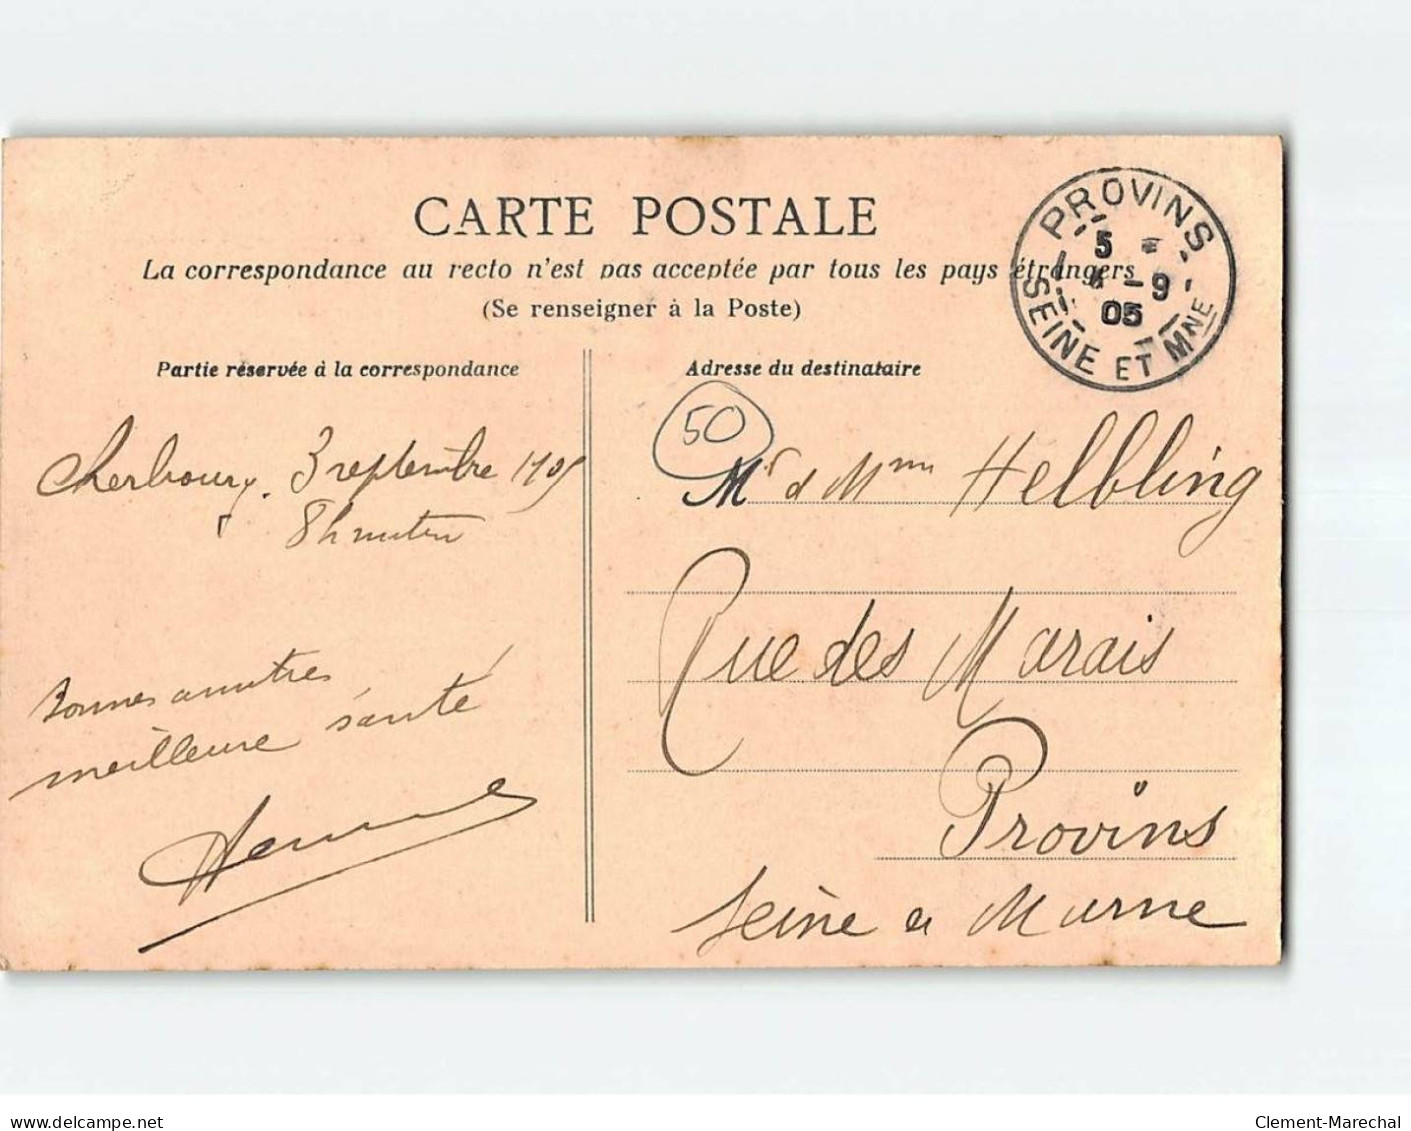 CARTE POSTALE
La correspondance au recto n'est pas acceptée par tous les pays étrangers
(Se renseigner à la Poste)
PROVINS
5
-9
05
SEINE ET MNE
Partie réservée à la correspondance
Cherbourg. 3 septembre 1905
8h matin
Bonnes amitiés
meilleure santé
Adresse du destinataire
50
Mr & Mme Helbling
Rue des Marais
Provins
Seine et Marne
delcampe.net
Clement-Marechal